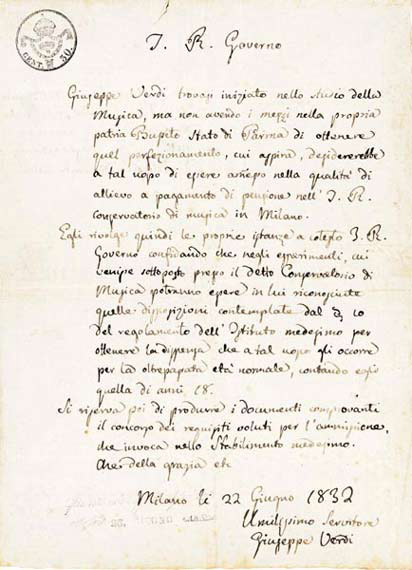 CENT. 30.
I. R. Governo
Giuseppe Verdi trovasi iniziato nello studio della
Musica, ma non avendo i mezzi nella propria
patria Busseto Stato di Parma di ottenere
quel perfezionamento, cui aspira, desidererebbe
a tal uopo di essere ammesso nella qualità di
allievo a pagamento di pensione nell' I. R.
Conservatorio di musica in Milano.
Egli rivolge quindi le proprie istanze a cotesto I. R.
Governo confidando che negli esperimenti, cui
venisse sottoposto presso il detto Conservatorio di
Musica potranno essere in lui riconosciute
quelle disposizioni contemplate dal § 10
del regolamento dell' Istituto medesimo per
ottenere la dispensa che a tal uopo gli occorre
per la oltrepassata età normale, contando egli
quella di anni 18.
Si riserva poi di produrre i documenti comprovanti
il concorso dei requisiti voluti per l'ammissione,
che invoca nello Stabilimento medesimo.
Che della grazia etc
Milano li 22 Giugno 1832
Umilissimo Servitore
Giuseppe Verdi